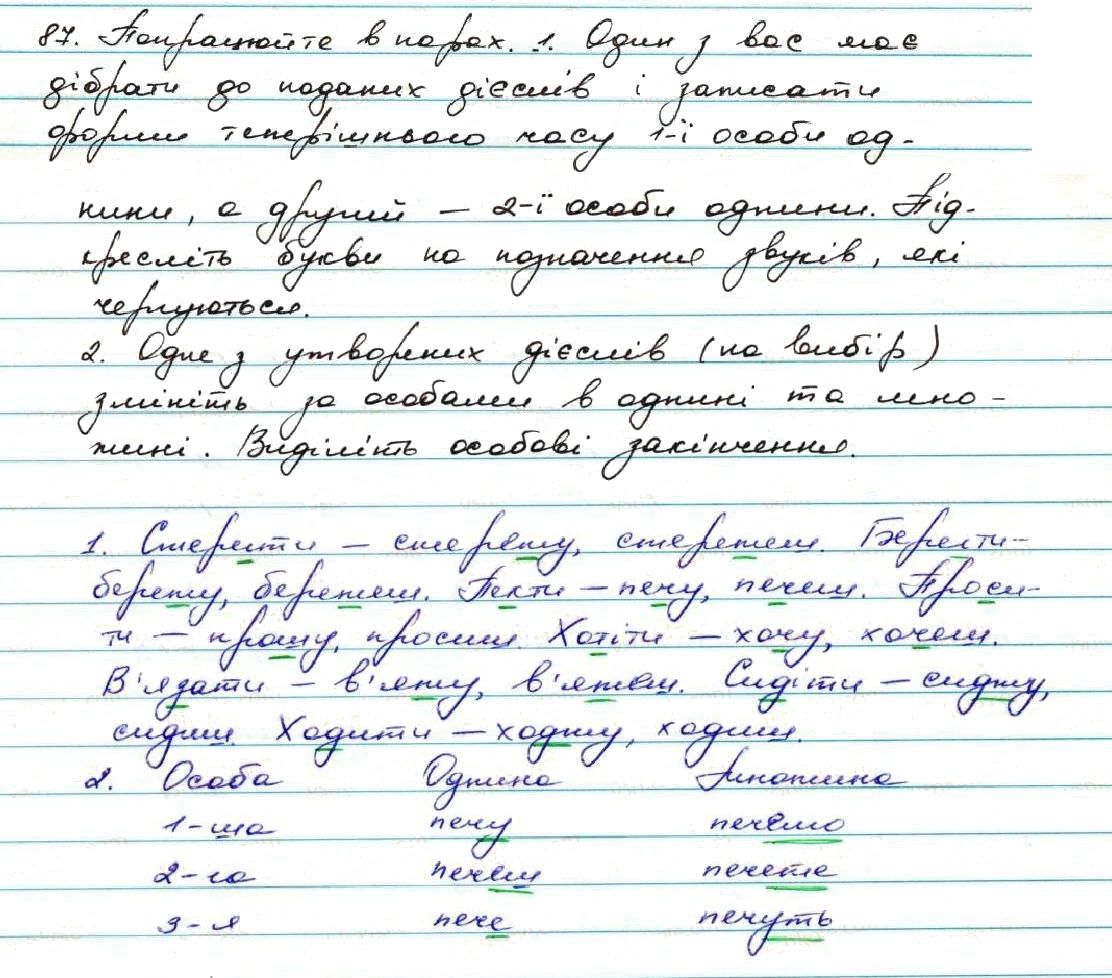 87. Попрацюйте в парах. 1. Один з вас має
дібрати до поданих дієслів і записати
форми теперішнього часу 1-ї особи од-
нини, а другий – 2-ї особи однини. Під-
кресліть букви на позначення звуків, які
чергуються.
2. Одне з утворених дієслів (на вибір)
змініть за особами в однині та мно-
жині. Виділіть особові закінчення.
1. Стерегти – стережу, стережеш. Берегти-
бережу, бережеш. Пекти – печу, печеш. Проси-
ти – прошу, просиш. Хотіти – хочу, хочеш.
В'язати – в'яжу, в'яжеш. Сидіти – сиджу,
сидиш. Ходити – ходжу, ходиш.
2. Особа Однина Множина
1-ша печу печемо
2-га печеш печете
3-я пече печуть